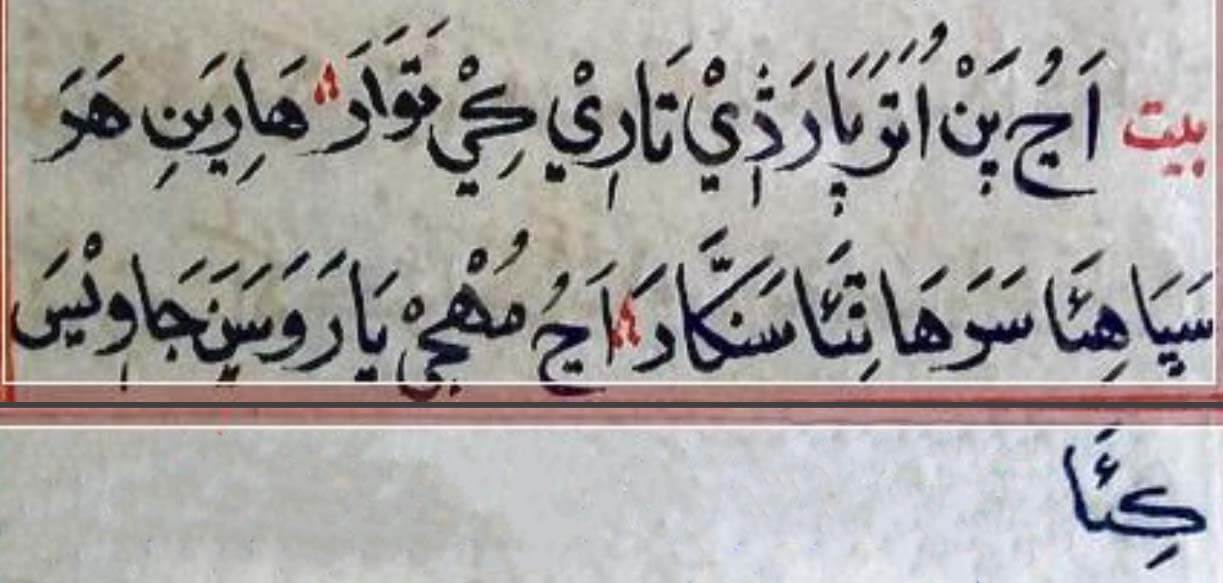 بيت اَجُ پَنْ اُتَرَ پَارَ ذِيْ تَارِيْ كِيْ تَوَارَ هَارِيَنِ هَرَ
سَپَاهِئَا سَرَهَا تِئَا سَنكَّارَ اَجُ مُهْجِيْ يَارَ وَسَنَ جَا وِيْسَ
كِئَا